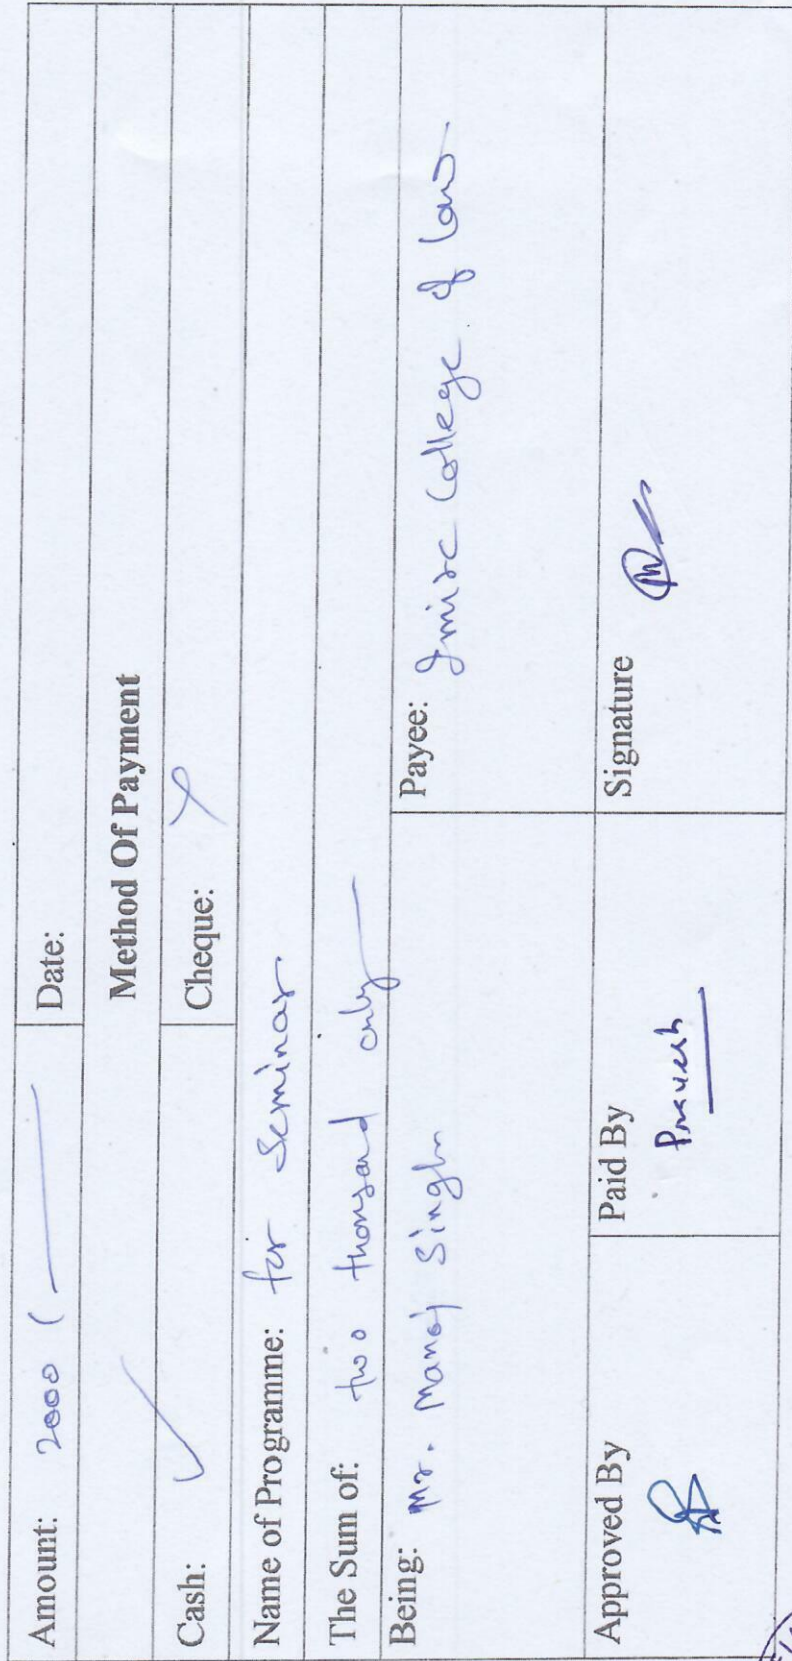 Amount: 2000 (—
Date:
Method Of Payment
Cash: ✓
Cheque: ✗
Name of Programme: for Seminar
The Sum of: two thousand only
Being: Mr. Manoj Singh
Payee: College of Law
Approved By
Paid By
Pravesh
Signature